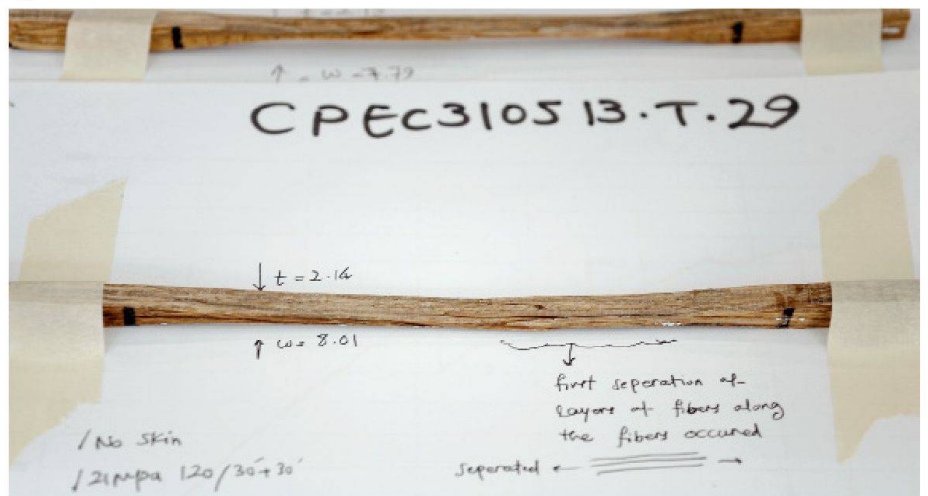 ↑ w = 7.79
CPEC310513.T.29
↓ t = 2.14
↑ w= 8.01
first seperation of
layers of fibers along
the fibers occured
/ No Skin
/ 21mpa 120/30'+30'
seperated ← →